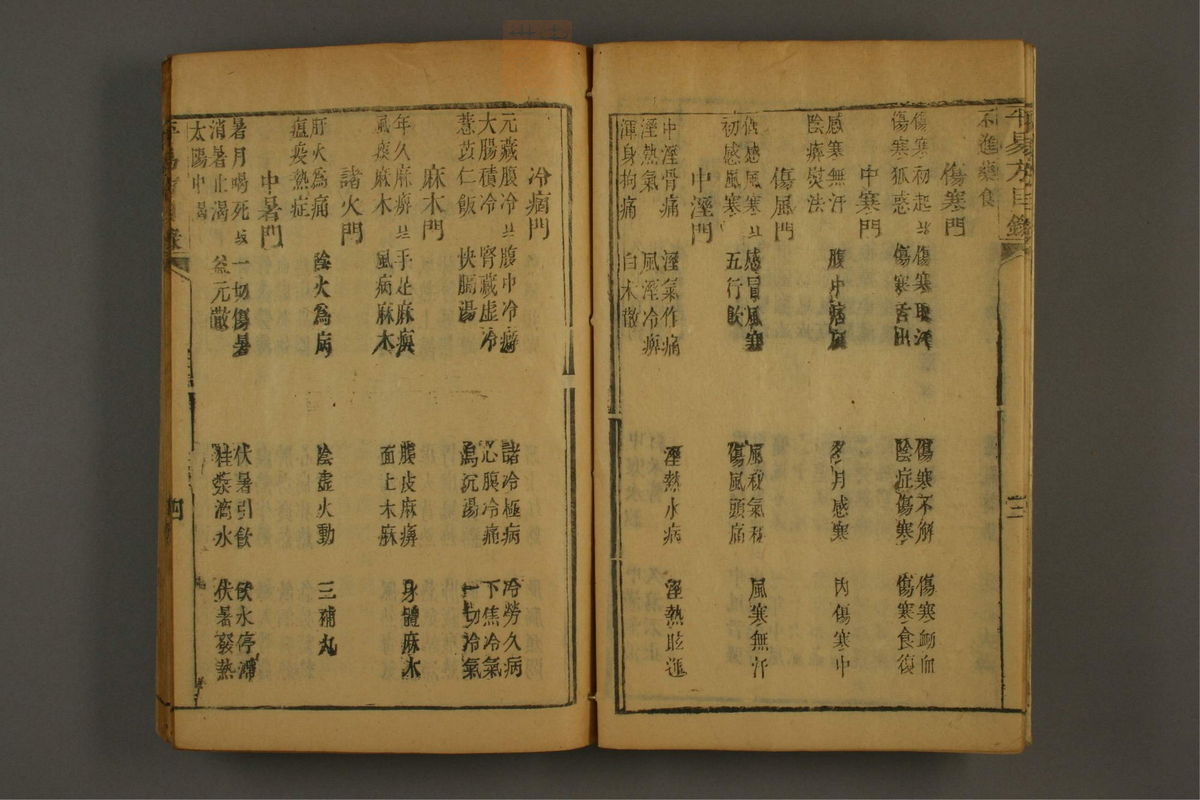 平易方目錄
不進藥食
傷寒門
傷寒初起 傷寒取汗 傷寒不解 傷寒衂血
傷寒狐惑 傷寒舌出 陰症傷寒 傷寒食復
中寒門
感寒無汗 腹中痞 冬月感寒 內傷寒中
陰癉熨法
傷風門
感風寒 感冒風寒 風秋氣 風寒無汗
初感風寒 五行飲 傷風頭痛
中溼門
中溼骨痛 溼氣作痛 溼熱水病 溼熱眩運
溼熱氣 風溼冷痹
渾身拘痛 白朮散
三
冷病門
元藏腹冷 腹中冷癖 諸冷極病 冷勞久病
大腸積冷 腎藏虛冷 心腹冷痛 下焦冷氣
薏苡仁飯 快膈湯 沉湯 一切冷氣
麻木門
年久麻痹 手足麻 腹皮麻痹 身體麻木
風痰麻木 風病麻木 面上木麻
諸火門
肝火為痛 陰火為病 陰虛火動 三補丸
瘟痰熱症
中暑門
暑月暍死 一切傷暑 伏暑引飲 飲水停滯
消暑止渴 益元散 桂漿滴水 伏暑發熱
太陽中暍
四